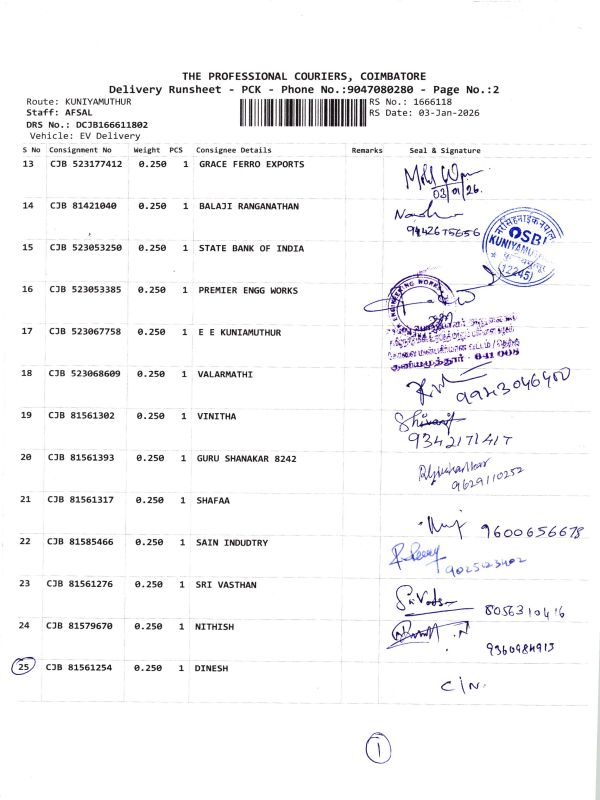 THE PROFESSIONAL COURIERS, COIMBATORE
Delivery Runsheet - PCK - Phone No.:9047080280 - Page No.:2
Route: KUNIYAMUTHUR RS No.: 1666118
Staff: AFSAL RS Date: 03-Jan-2026
DRS No.: DCJB166611802
Vehicle: EV Delivery
S No Consignment No Weight PCS Consignee Details Remarks Seal & Signature
13 CJB 523177412 0.250 1 GRACE FERRO EXPORTS
03/01/26.
14 CJB 81421040 0.250 1 BALAJI RANGANATHAN
9442675656
15 CJB 523053250 0.250 1 STATE BANK OF INDIA
SBI
KUNIYAMUTHUR
(12245)
16 CJB 523053385 0.250 1 PREMIER ENGG WORKS
17 CJB 523067758 0.250 1 E E KUNIAMUTHUR
குனியமுத்தூர் - 641 008
18 CJB 523068609 0.250 1 VALARMATHI
9943046400
19 CJB 81561302 0.250 1 VINITHA
9342171417
20 CJB 81561393 0.250 1 GURU SHANAKAR 8242
9629110252
21 CJB 81561317 0.250 1 SHAFAA
9600656678
22 CJB 81585466 0.250 1 SAIN INDUDTRY
23 CJB 81561276 0.250 1 SRI VASTHAN
8056310416
24 CJB 81579670 0.250 1 NITHISH
9360984913
25 CJB 81561254 0.250 1 DINESH
C/N.
1